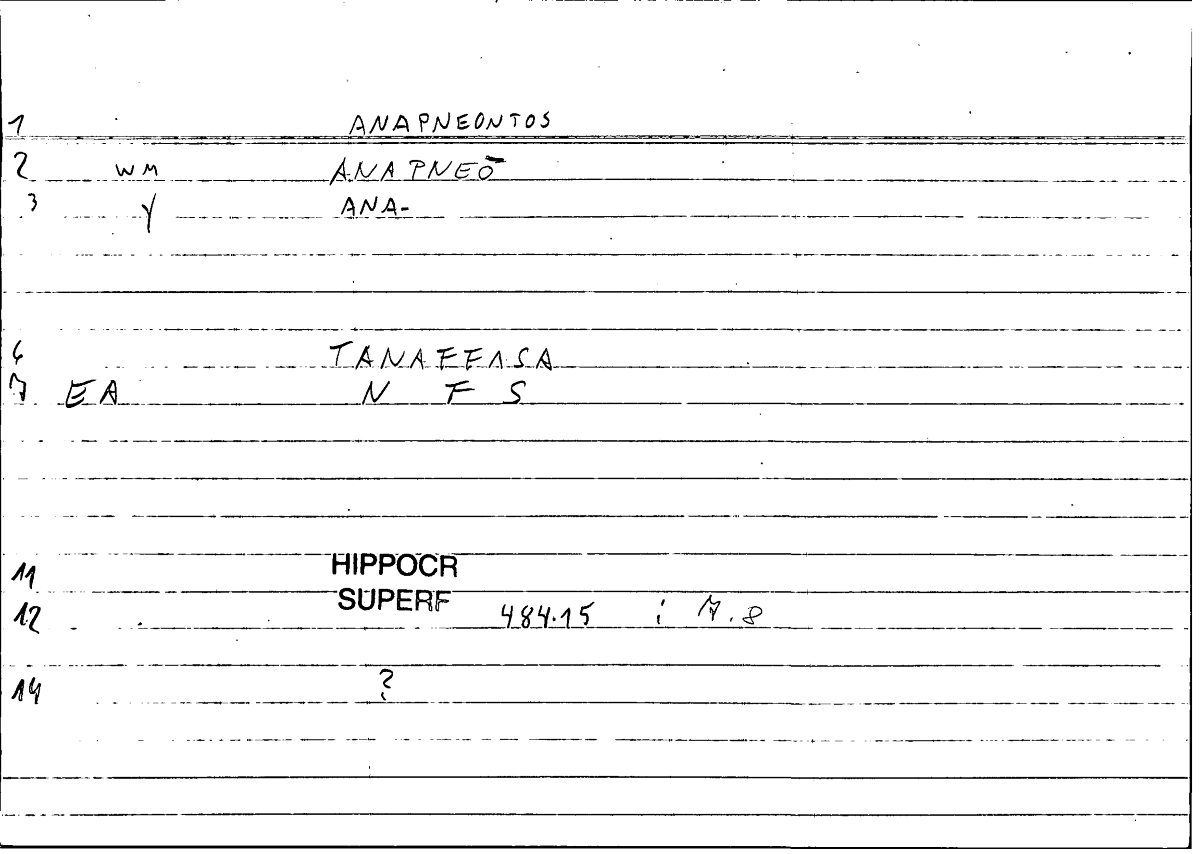 1 ANAPNEONTOS
2 WM ANAPNEŌ
3 Y ANA-
6 TANAFFASA
7 EA N F S
11 HIPPOCR
12 SUPERF 484.15 ; 7.8
14 ?